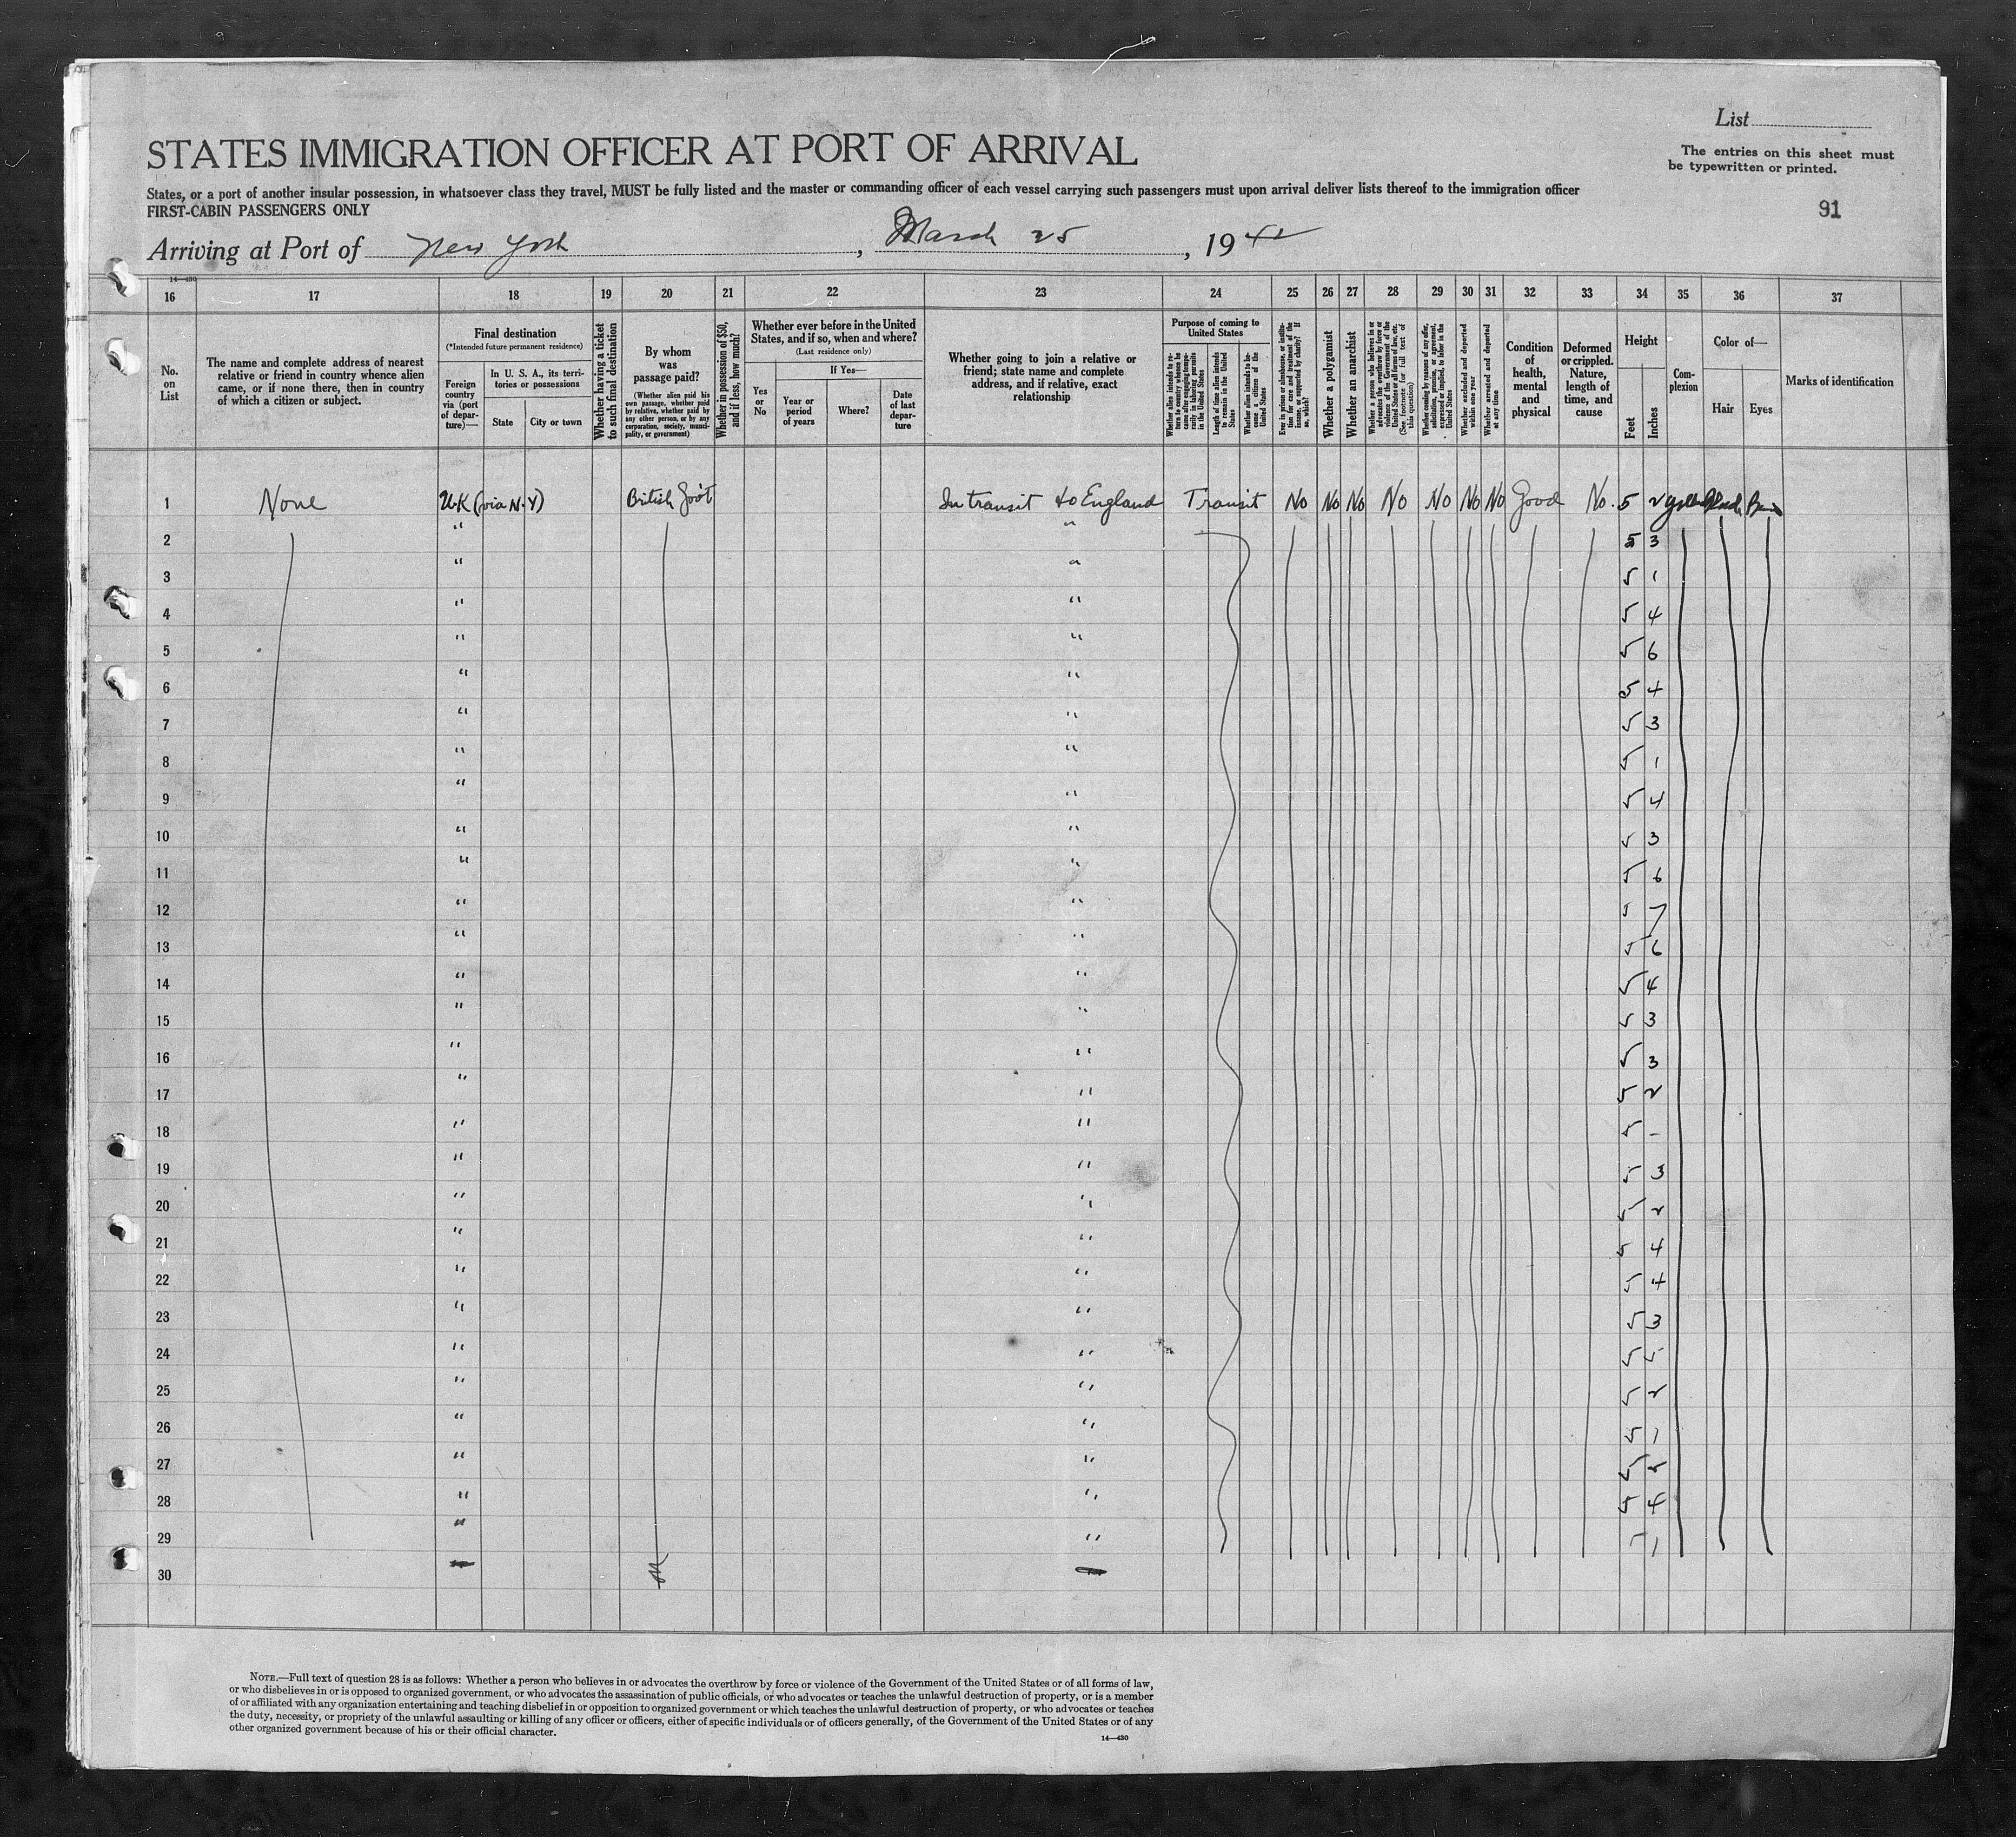 List
STATES IMMIGRATION OFFICER AT PORT OF ARRIVAL
The entries on this sheet must
be typewritten or printed.
States, or a port of another insular possession, in whatsoever class they travel, MUST be fully listed and the master or commanding officer of each vessel carrying such passengers must upon arrival deliver lists thereof to the immigration officer
FIRST-CABIN PASSENGERS ONLY
91
Arriving at Port of New York, March 25, 1942
14—430
16 17 18 19 20 21 22 23 24 25 26 27 28 29 30 31 32 33 34 35 36 37
No. on List
The name and complete address of nearest relative or friend in country whence alien came, or if none there, then in country of which a citizen or subject.
Final destination
(*Intended future permanent residence)
Foreign country via (port of departure)—
In U. S. A., its territories or possessions
State
City or town
Whether having a ticket to such final destination
By whom was passage paid?
(Whether alien paid his own passage, whether paid by relative, whether paid by any other person, or by any corporation, society, municipality, or government)
Whether in possession of $50, and if less, how much?
Whether ever before in the United States, and if so, when and where?
(Last residence only)
Yes or No
If Yes—
Year or period of years
Where?
Date of last departure
Whether going to join a relative or friend; state name and complete address, and if relative, exact relationship
Purpose of coming to United States
Whether alien intends to return to country whence he came after engaging temporarily in laboring pursuits in the United States
Length of time alien intends to remain in the United States
Whether alien intends to become a citizen of the United States
Ever in prison or almshouse, or institution for care and treatment of the insane, or supported by charity? If so, which?
Whether a polygamist
Whether an anarchist
Whether a person who believes in or advocates the overthrow by force or violence of the Government of the United States or all forms of law, etc. (See footnote for full text of this question)
Whether coming by reason of any offer, solicitation, promise, or agreement, expressed or implied, to labor in the United States
Whether excluded and deported within one year
Whether arrested and deported at any time
Condition of health, mental and physical
Deformed or crippled. Nature, length of time, and cause
Height
Feet
Inches
Complexion
Color of—
Hair
Eyes
Marks of identification
1 None U.K (via N.Y) British Gov't In transit to England Transit No No No No No No No Good No. 5 2
2 " " 5 3
3 " " 5 1
4 " " 5 4
5 " " 5 6
6 " " 5 4
7 " " 5 3
8 " " 5 1
9 " " 5 4
10 " " 5 3
11 " " 5 6
12 " " 5 7
13 " " 5 6
14 " " 5 4
15 " " 5 3
16 " " 5 3
17 " " 5 2
18 " " 5 -
19 " " 5 3
20 " " 5 2
21 " " 5 4
22 " " 5 4
23 " " 5 3
24 " " 5 5
25 " " 5 2
26 " " 5 1
27 " " 5
28 " " 5 4
29 " " 5 1
30
NOTE.—Full text of question 28 is as follows: Whether a person who believes in or advocates the overthrow by force or violence of the Government of the United States or of all forms of law,
or who disbelieves in or is opposed to organized government, or who advocates the assassination of public officials, or who advocates or teaches the unlawful destruction of property, or is a member
of or affiliated with any organization entertaining and teaching disbelief in or opposition to organized government or which teaches the unlawful destruction of property, or who advocates or teaches
the duty, necessity, or propriety of the unlawful assaulting or killing of any officer or officers, either of specific individuals or of officers generally, of the Government of the United States or of any
other organized government because of his or their official character.
14—430